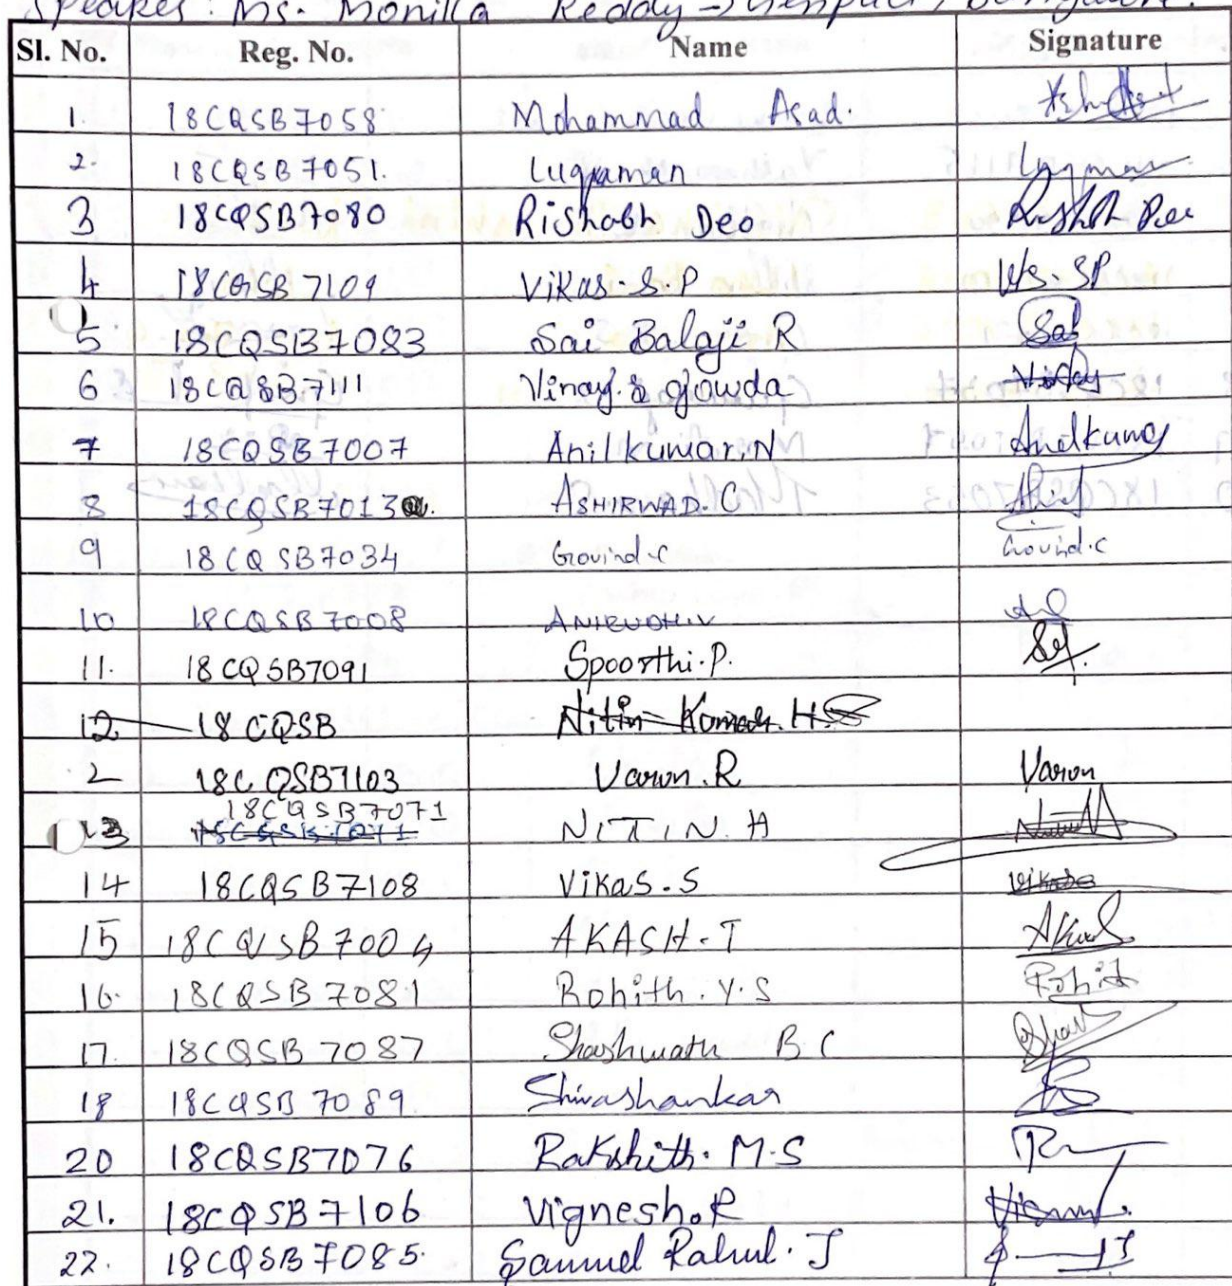 Speaker: Ms. Monika Reddy - Bangalore.
Sl. No. Reg. No. Name Signature
1. 18CQSB7058 Mohammad Asad.
2. 18CQSB7051. Luqmaman
3 18CQSB7080 Rishabh Deo Rishabh Deo
4 18CQSB7109 Vikas.S.P VS.SP
5 18CQSB7083 Sai Balaji R Sai
6 18CQSB7111 Vinay.S gowda
7 18CQSB7007 Anilkumar.N Anilkumar
8 18CQSB7013 ASHIRWAD.C
9 18CQSB7034 Govind.C Govind.c
10 18CQSB7008 ANIRUDH.V
11. 18CQSB7091 Spoorthi.P.
12 18CQSB Nitin Kumar.H.S
2 18CQSB7103 Varun.R Varun
13 18CQSB7071 NITIN.H
14 18CQSB7108 Vikas.S Vikas
15 18CQSB7004 AKASH.T Akash
16. 18CQSB7081 Rohith.Y.S Rohit
17. 18CQSB7087 Shashwath B.C
18 18CQSB7089. Shivashankar
20 18CQSB7076 Rakshith.M.S
21. 18CQSB7106 Vignesh.R
22. 18CQSB7085. Samuel Rahul.J